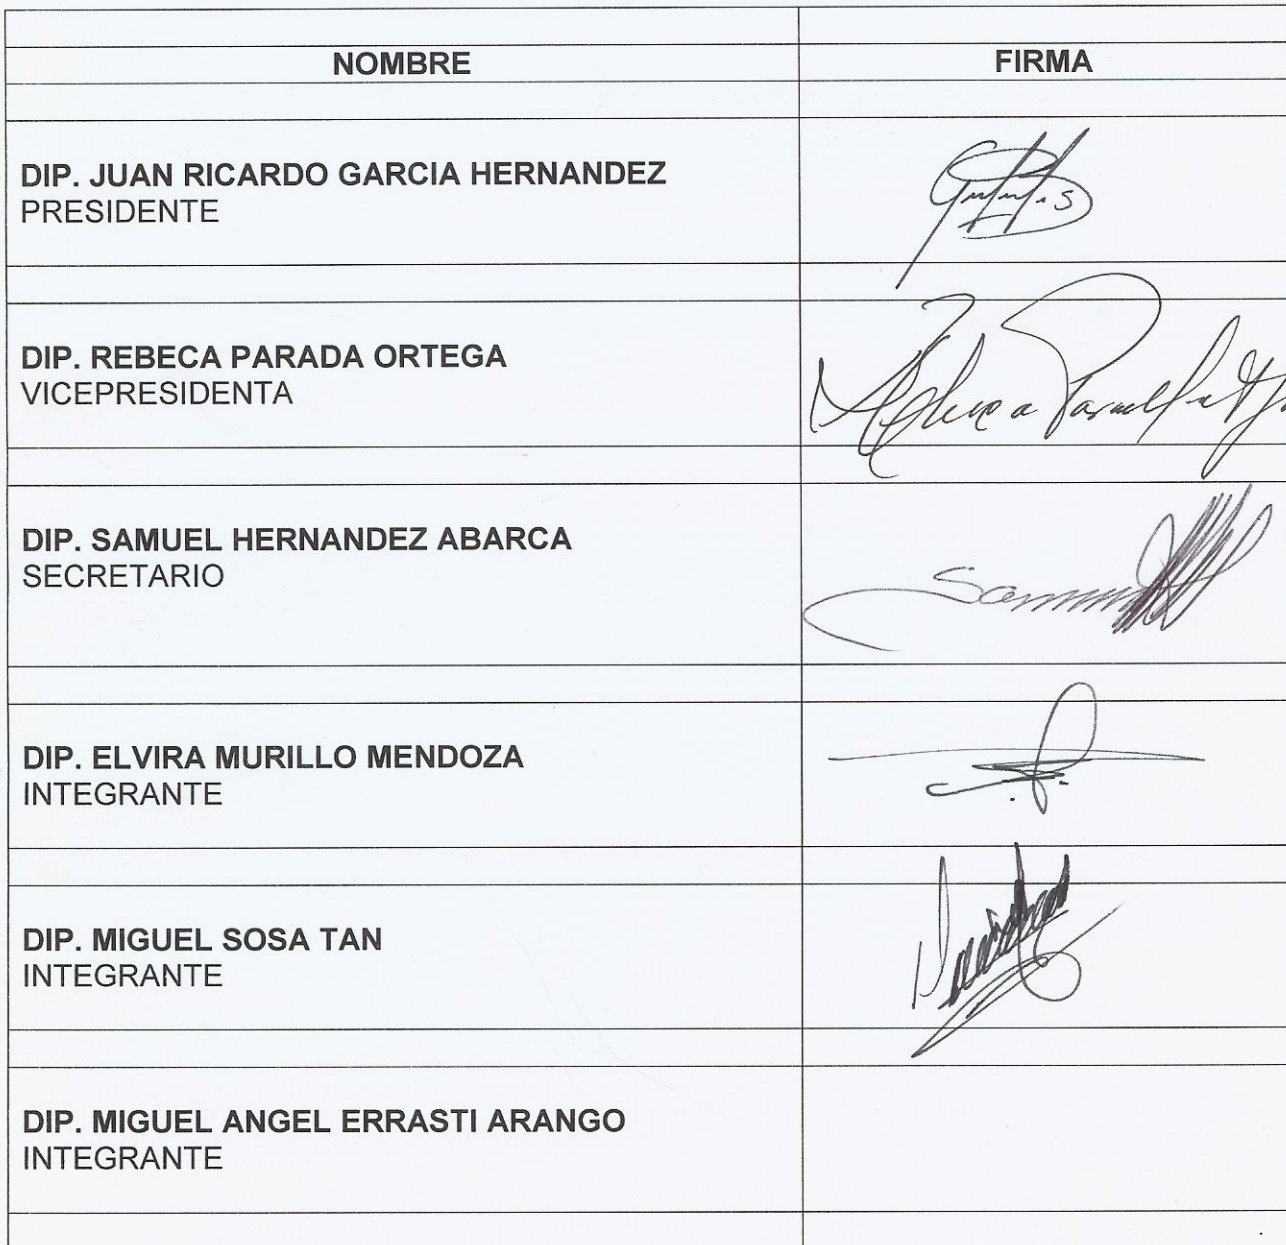 NOMBRE FIRMA
DIP. JUAN RICARDO GARCIA HERNANDEZ
PRESIDENTE
DIP. REBECA PARADA ORTEGA
VICEPRESIDENTA
Rebeca Parada
DIP. SAMUEL HERNANDEZ ABARCA
SECRETARIO
Samuel
DIP. ELVIRA MURILLO MENDOZA
INTEGRANTE
DIP. MIGUEL SOSA TAN
INTEGRANTE
DIP. MIGUEL ANGEL ERRASTI ARANGO
INTEGRANTE